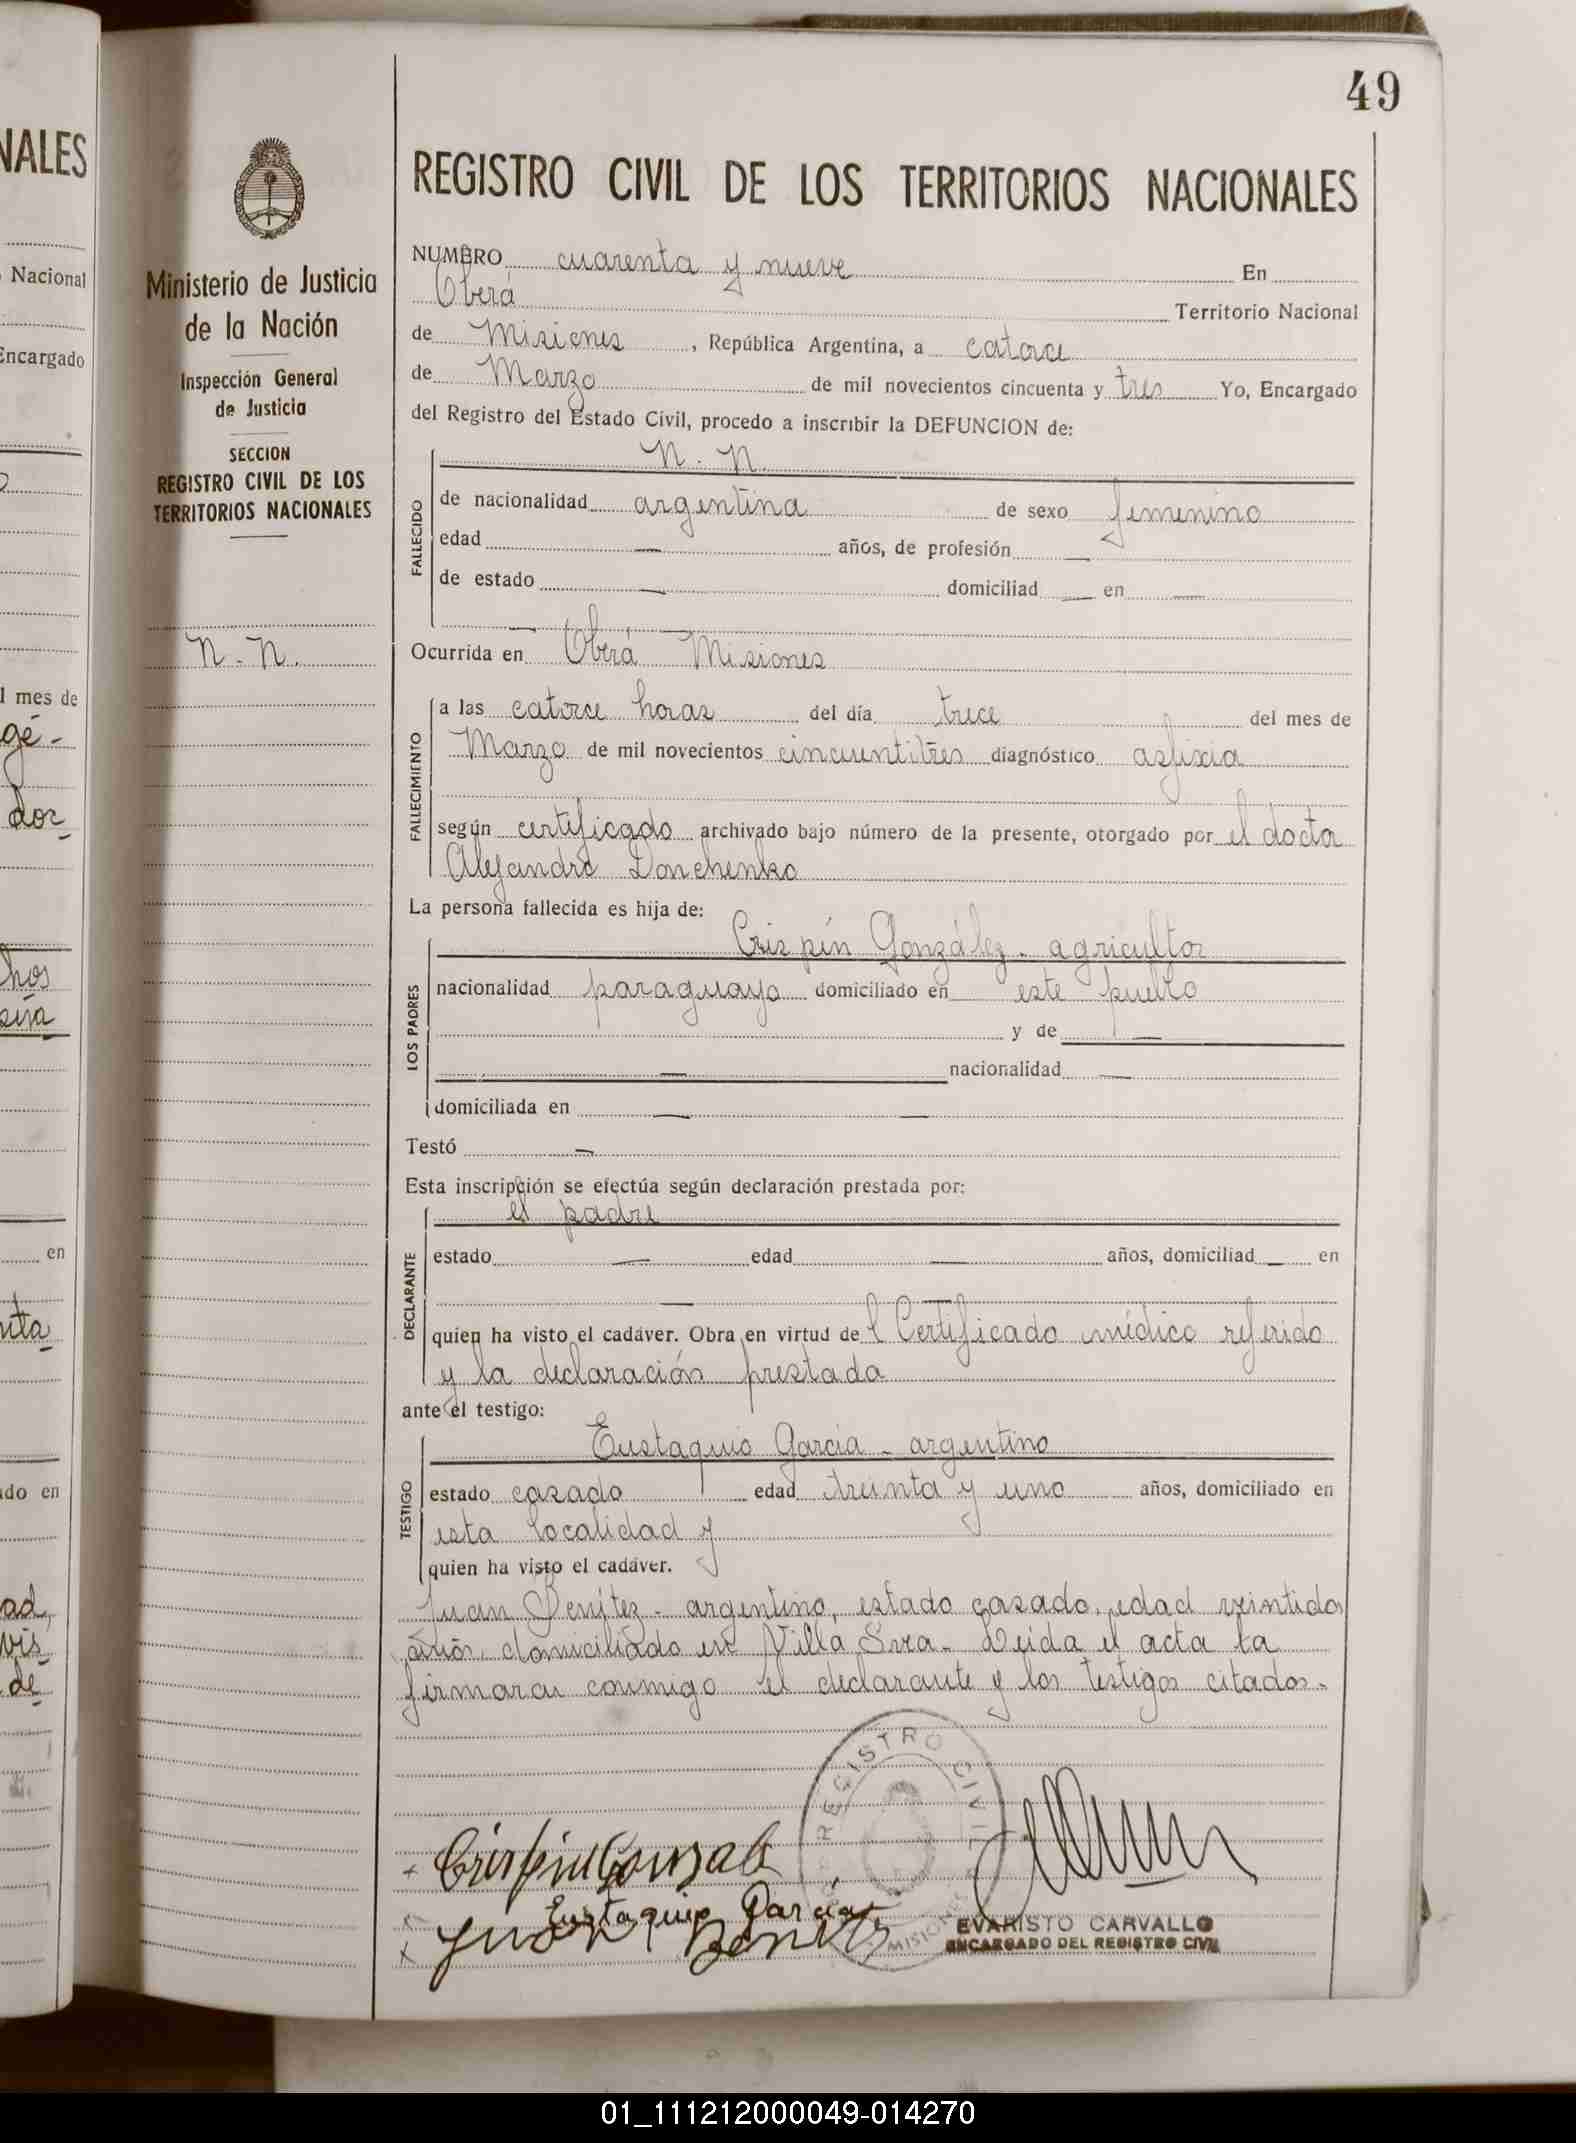 49
NALES
Nacional
Encargado
l mes de
gé-
dor
hos
en
nta
do en
ad,
vis
de
Ministerio de Justicia
de la Nación
Inspección General
de Justicia
SECCION
REGISTRO CIVIL DE LOS
TERRITORIOS NACIONALES
N. N.
REGISTRO CIVIL DE LOS TERRITORIOS NACIONALES
NUMERO cuarenta y nueve En
Oberá Territorio Nacional
de Misiones, República Argentina, a catorce
de Marzo de mil novecientos cincuenta y tres Yo, Encargado
del Registro del Estado Civil, procedo a inscribir la DEFUNCION de:
N. N.
FALLECIDO
de nacionalidad argentina de sexo femenino
edad — años, de profesión —
de estado — domiciliad — en —
—
Ocurrida en Oberá Misiones
FALLECIMIENTO
a las catorce horas del día trece del mes de
Marzo de mil novecientos cincuentitres diagnóstico asfixia
según certificado archivado bajo número de la presente, otorgado por el doctor
Alejandro Donchenko
La persona fallecida es hija de:
LOS PADRES
Crispín González - agricultor
nacionalidad paraguayo domiciliado en este pueblo
y de —
— nacionalidad —
domiciliada en — —
Testó —
Esta inscripción se efectúa según declaración prestada por:
DECLARANTE
el padre
estado — edad — años, domiciliad — en
—
quien ha visto el cadáver. Obra en virtud de l Certificado médico referido
y la declaración prestada
ante el testigo:
TESTIGO
Eustaquio Garcia - argentino
estado casado edad treinta y uno años, domiciliado en
esta localidad y
quien ha visto el cadáver.
Juan Benítez - argentino, estado casado, edad veintidos
años, domiciliado en Villa Svea - Leida el acta la
firmaran conmigo el declarante y los testigos citados.
REGISTRO CIVIL
MISIONES
+ Crispin Gonzale
Eustaquio Garcia
x Juan Benites
EVARISTO CARVALLO
ENCARGADO DEL REGISTRO CIVIL
01_111212000049-014270